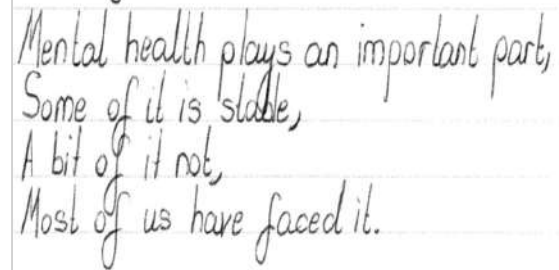 Mental health plays an important part,
Some of it is stable,
A bit of it not,
Most of us have faced it.